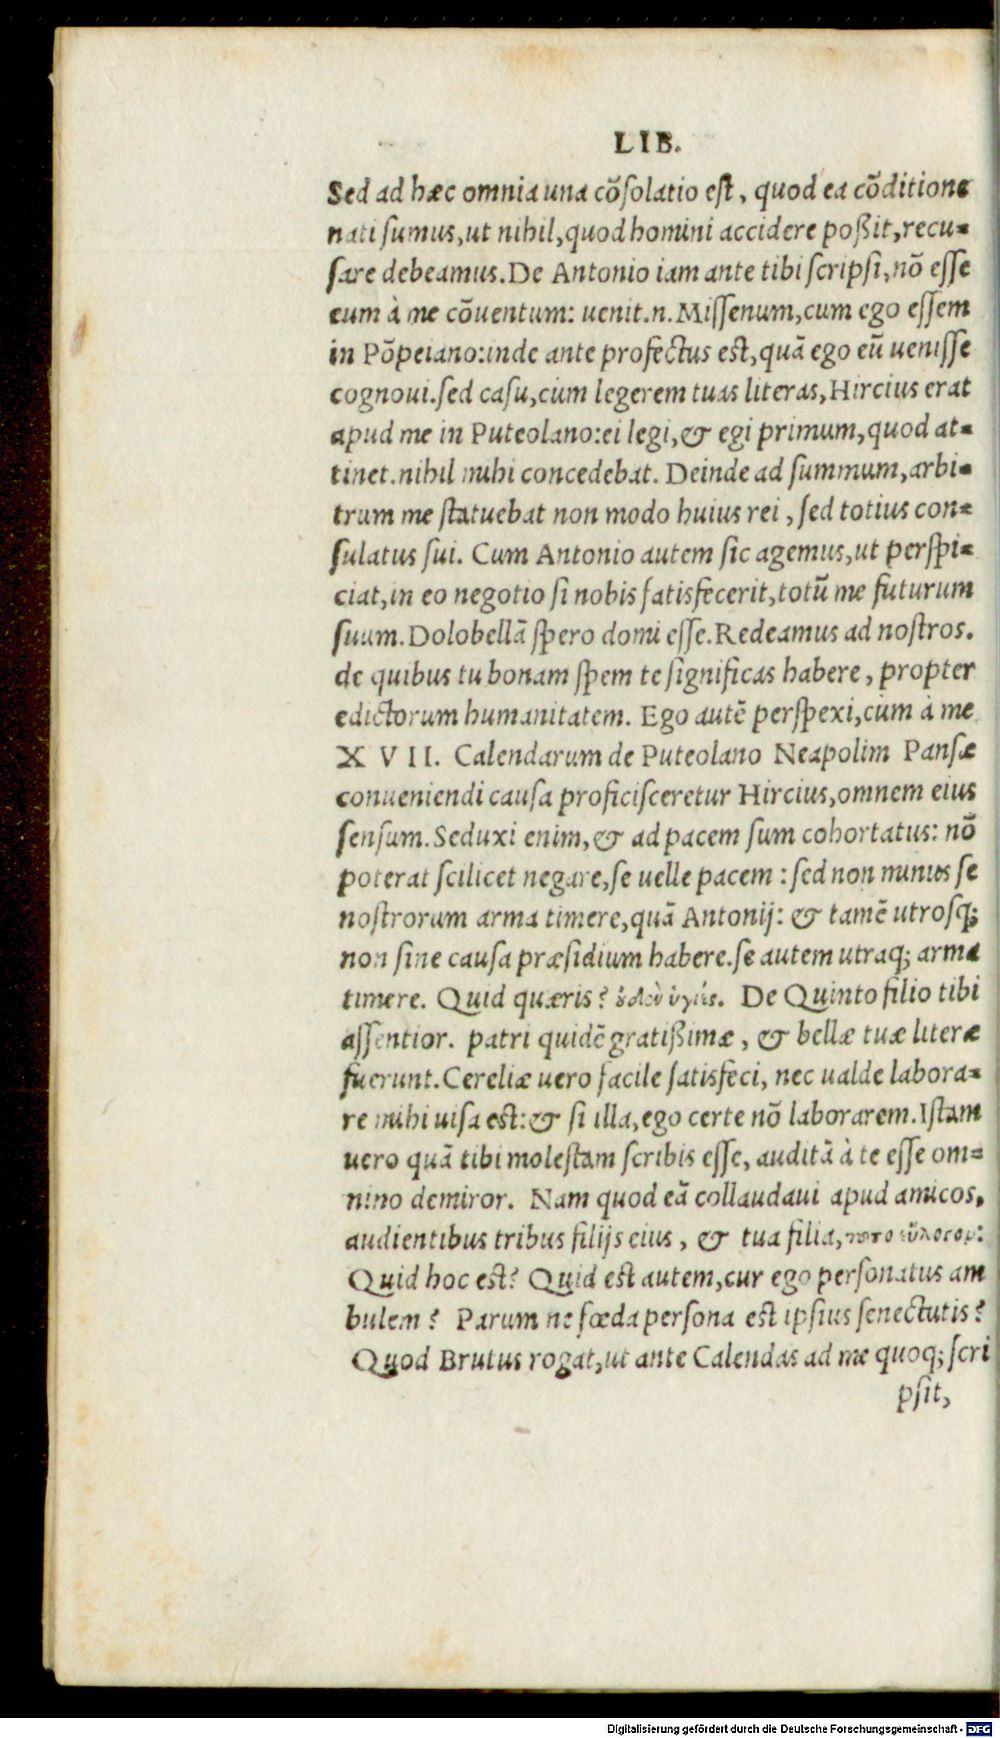 LIB.
Sed ad hæc omnia una cõsolatio est, quod ea cõditione
nati sumus, ut nihil, quod homini accidere poßit, recu-
sare debeamus. De Antonio iam ante tibi scripsi, nõ esse
eum à me cõuentum: uenit.n. Missenum, cum ego essem
in Põpeiano: inde ante profectus est, quã ego eũ uenisse
cognoui. sed casu, cum legerem tuas literas, Hircius erat
apud me in Puteolano: ei legi, & egi primum, quod at-
tinet. nihil mihi concedebat. Deinde ad summum, arbi-
trum me statuebat non modo huius rei, sed totius con-
sulatus sui. Cum Antonio autem sic agemus, ut perspi-
ciat, in eo negotio si nobis satisfecerit, totũ me futurum
suum. Dolobellã spero domi esse. Redeamus ad nostros.
de quibus tu bonam spem te significas habere, propter
edictorum humanitatem. Ego autẽ perspexi, cùm à me
XVII. Calendarum de Puteolano Neapolim Pansæ
conueniendi causa proficisceretur Hircius, omnem eius
sensum. Seduxi enim, & ad pacem sum cohortatus: nõ
poterat scilicet negare, se uelle pacem: sed non minus se
nostrorum arma timere, quã Antonij: & tamẽ utrosq;
non sine causa præsidium habere. se autem utraq; arma
timere. Quid quæris? De Quinto filio tibi
assentior. patri quidẽ gratißimæ, & bellæ tuæ literæ
fuerunt. Cereliæ uero facile satisfeci, nec ualde labora-
re mihi uisa est: & si illa, ego certe nõ laborarem. Istam
uero quã tibi molestam scribis esse, auditã à te esse om-
nino demiror. Nam quod eã collaudaui apud amicos,
audientibus tribus filijs eius, & tua filia,
Quid hoc est? Quid est autem, cur ego personatus am
bulem? Parum ne fœda persona est ipsius senectutis?
Quod Brutus rogat, ut ante Calendas ad me quoq; scri
psit,
Digitalisierung gefördert durch die Deutsche Forschungsgemeinschaft - DFG